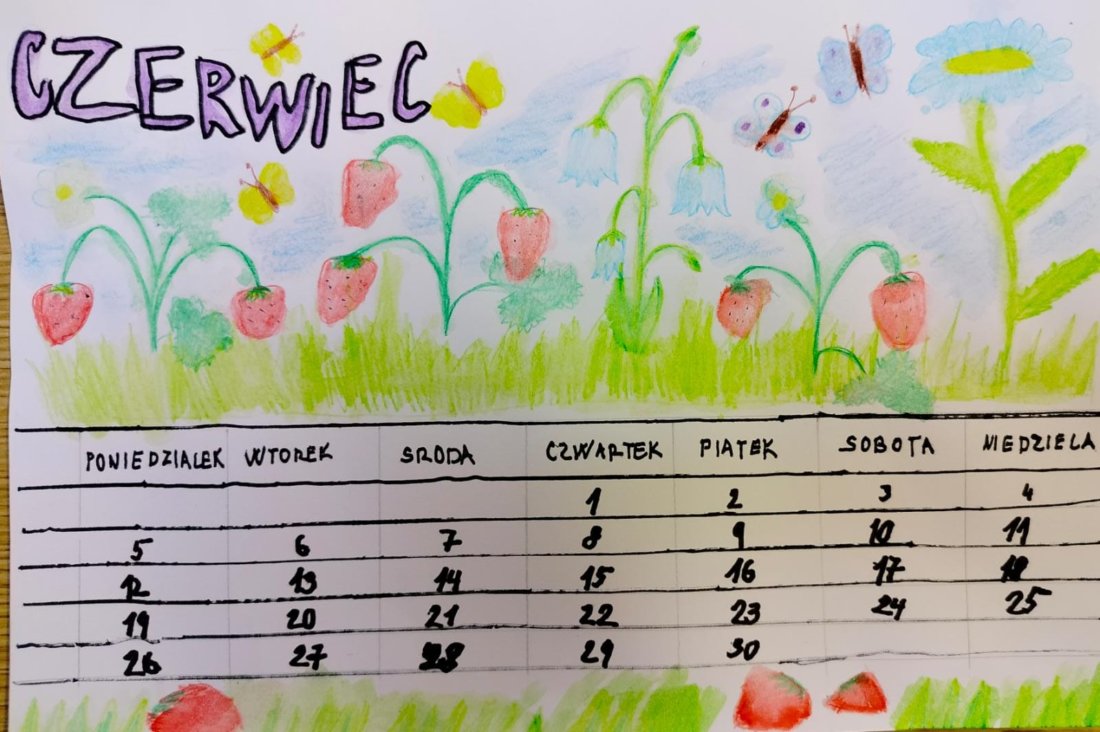 CZERWIEC
PONIEDZIALEK WTOREK SRODA CZWARTEK PIATEK SOBOTA NIEDZIELA
1 2 3 4
5 6 7 8 9 10 11
12 13 14 15 16 17 18
19 20 21 22 23 24 25
26 27 28 29 30